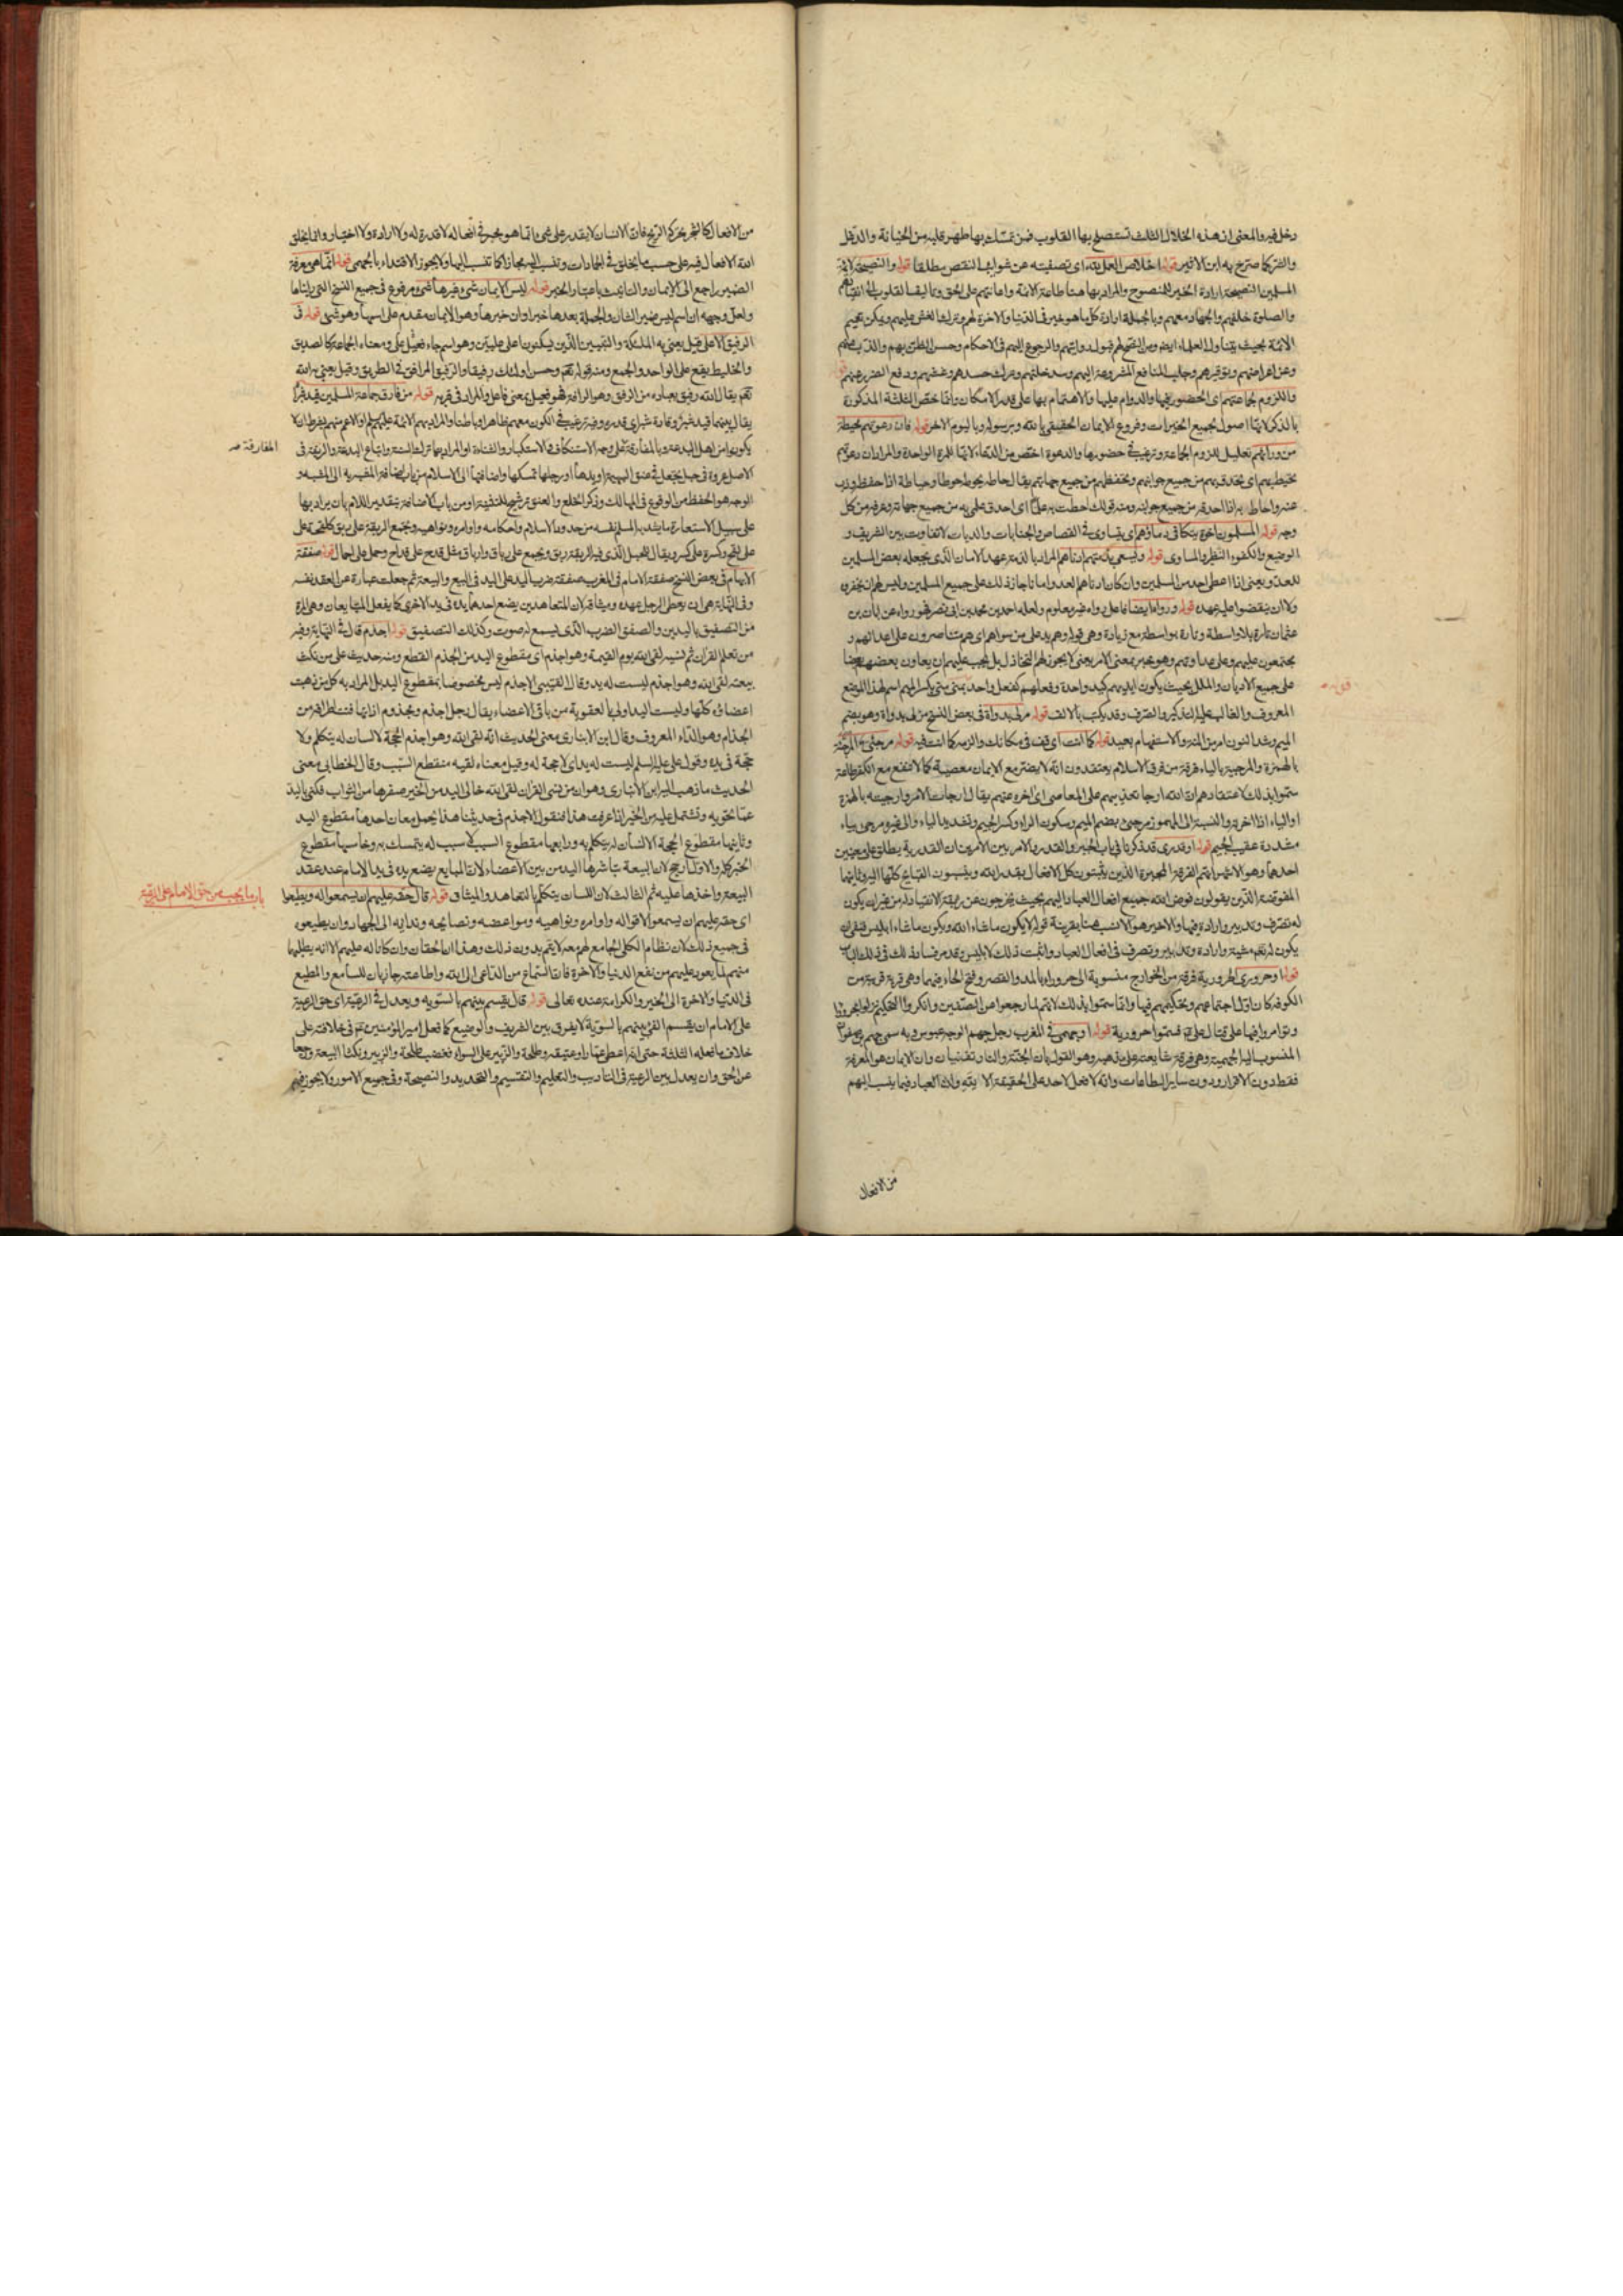 دخل فيه والمعنى ان هذه الخلال الثلث تستصلح بها القلوب فمن تمسك بها طهر قلبه من الخيانة والدغل
والشر كما صرح به ابن الاثير قوله اخلاص العمل لله اى تصفيته عن شوائب النقص مطلقا قوله والنصيحة لائمة
المسلمين النصيحة ارادة الخير للمنصوح والمراد بها هنا طاعة الائمة واعانتهم على الحق وتاليف القلوب الى انقيادهم
والصلوة خلفهم والجهاد معهم وبالجملة ارادة كل ما هو خير فى الدنيا والاخرة لهم وترك الغش عليهم ويمكن تعميم
الائمة بحيث يتناول العلماء ايضا ومن النصح لهم قبول روايتهم والرجوع اليهم فى الاحكام وحسن الظن بهم والذب عنهم
وعن اعراضهم وتوقيرهم وجلب المنافع المشروعة اليهم وسد خلتهم وترك حسدهم وغشهم ودفع الضرر عنهم
واللزوم لجماعتهم اى الحضور فيها والدوام عليها والاهتمام بها على قدر الامكان وانما خص الثلثة المذكورة
بالذكر لانها اصول لجميع الخيرات وفروع الايمان الحقيقى بالله وبرسوله وباليوم الاخر قوله فان دعوتهم محيطة
من ورائهم تعليل للزوم الجماعة وترغيب فى حضورها والدعوة اخص من الدعاء لانها للمرة الواحدة والمراد ان دعوتهم
تحيط بهم اى تحدق بهم من جميع جوانبهم وتحفظهم من جميع جهاتهم يقال حاطه يحوطه حوطا وحياطة اذا حفظه وذب
عنه واحاط به اذا احدقه من جميع جوانبه ومنه قولك احطت به علما اى احدق علمى به من جميع جهاته وعرفه من كل
وجه قوله المسلمون اخوة يتكافى دماؤهم اى يتساوى فى القصاص والجنايات والديات لا تفاوت بين الشريف و
الوضيع والكفوء النظير والمساوى قوله ويسعى بذمتهم ادناهم المراد بالذمة عهد الامان الذى يجعله بعض المسلمين
للعدو يعنى اذا اعطى احد من المسلمين وان كان ادناهم العدو امانا جاز ذلك على جميع المسلمين وليس لهم ان يخفروه
ولا ان ينقضوا عليه عهده قوله ورواه ايضا فاعل رواه غير معلوم ولعله احمد بن محمد بن ابى نصر فهو رواه عن ابان بن
عثمان تارة بلا واسطة وتارة بواسطة مع زيادة وهى قوله وهم يد على من سواهم اى هم متناصرون على اعدائهم و
مجتمعون عليهم وعلى عداوتهم وهو خبر بمعنى الامر يعنى لا يجوز لهم التخاذل بل يجب عليهم ان يعاون بعضهم بعضا
على جميع الاديان والملل بحيث يكون ايديهم كيد واحدة وفعلهم كفعل واحد بمنى منى بكسر الميم اسم لهذا الموضع
المعروف والغالب عليه التذكير والصرف وقد يكتب بالالف قوله
الميم وشد النون امر من المنة والاستفهام بعيد قوله كما انت اى قف فى مكانك والزمه كما انت فيه قوله مرجئى المرجئة
بالهمزة والمرجية بالياء فرقة من فرق الاسلام يعتقدون انه لا يضر مع الايمان معصية كما لا تنفع مع الكفر طاعة
سموا بذلك لاعتقادهم ان الله ارجا تعذيبهم على المعاصى اى اخره عنهم يقال ارجات الامر وارجيته بالهمزة
او الياء اذا اخرته والنسبة الى المهموز مرجئى بضم الميم وسكون الراء وكسر الجيم وتشديد الياء والى غيره مرجى بياء
مشددة عقيب الجيم قوله او قدرى قد ذكرنا فى باب الجبر والقدر والامر بين الامرين ان القدرية يطلق على معنيين
احدهما وهو الاشهر انهم الفرقة المجبرة الذين يثبتون كل الافعال بقدر الله وينسبون القبايح كلها اليه وثانيهما
المفوضة الذين يقولون فوض الله جميع افعال العباد اليهم بحيث يخرجون عن ربقة الانقياد له من غير ان يكون
له تصرف وتدبير وارادة فيها والاخير هو الانسب هنا بقرينة قوله لا يكون ما شاء الله ويكون ما شاء ابليس فنفى ان
يكون لله تعم مشية وارادة وتدبير وتصرف فى افعال العباد واثبت ذلك لابليس وقد مر فساد ذلك فى ذلك الباب
قوله او حرورى الحرورية فرقة من الخوارج منسوبة الى حروراء بالمد والقصر وفتح الحاء فيهما وهى قرية قريبة من
الكوفه كان اول اجتماعهم وتحكيمهم فيها وانما سموا بذلك لانهم لما رجعوا عن الصفين وانكروا التحكيم نزلوا بحروراء
وتوامروا فيها على قتال على ع فسموا حرورية قوله او جهمى فى المغرب رجل جهم الوجه عبوس وبه سمى جهم بن صفوان
المنسوب اليه الجهمية وهى فرقة شايعته على مذهبه وهو القول بان الجنة والنار تفنيان وان الايمان هو المعرفة
فقط دون الاقرار ودون ساير الطاعات وانه لا فعل لاحد على الحقيقة الا لله وان العباد فيما ينسب اليهم
من الافعال
من الافعال كالشجر يحركه الريح فان الانسان لا يقدر على شئ انما هو مجبر فى افعاله لا قدرة له ولا ارادة ولا اختيار وانما يخلق
الله الافعال فيه على حسب ما يخلق فى الجمادات وتنسب اليه مجازا كما تنسب اليها ولا يجوز الاقتداء بالجهمى قوله انما هى معرفة
الضمير راجع الى الايمان والتانيث باعتبار الخبر قوله ليس الايمان شئ وغيرها شئ مرفوع فى جميع النسخ التى رايناها
ولعل وجهه ان اسم ليس ضمير الشان والجملة بعدها خبرا وان خبرها وهو الايمان مقدم على اسمها وهو شئ قوله فى
الرفيق الاعلى قيل يعنى به الملئكة والنبيين الذين يسكنون اعلى عليين وهو اسم جاء على فعيل ومعناه الجماعة كالصديق
والخليط يقع على الواحد والجمع ومنه قوله تعم وحسن اولئك رفيقا والرفيق المرافق فى الطريق وقيل يعنى به الله
تعم يقال الله رفيق بعباده من الرفق وهو الرافة فهو فعيل بمعنى فاعل والمراد فى قربه قوله من فارق جماعة المسلمين قيد شبر
يكونوا من اهل البدعة وبالمفارقة على وجه الاستنكاف والاستكبار
المفارقة صـ
الاصل عروة فى حبل يجعل فى عنق البهيمة او يدها او رجلها تمسكها واضافتها الى الاسلام من باب اضافة المشبه به الى المشبه و
الوجه هو الحفظ من الوقوع فى المهالك وذكر الخلع والعنق ترشيح للتشبيه او من باب الاضافة بتقدير اللام بان يراد بها
على سبيل الاستعارة ما يشد به المسلم نفسه من حدود الاسلام واحكامه واوامره ونواهيه وتجمع الربقة على ربق
الابهام فى بعض النسخ صفقة الامام فى المغرب صفقة ضرب اليد على اليد فى البيع والبيعة ثم جعلت عبارة عن العقد نفسه
وفى النهاية هى ان يعطى الرجل عهده وميثاقه لان المتعاهدين يضع احدهما يده فى يد الاخرى كما يفعل المتبايعان وهى المرة
من التصفيق باليدين والصفق الضرب الذى يسمع له صوت وكذلك التصفيق قوله اجذم قال فى النهاية وفيه
من تعلم القران ثم نسيه لقى الله يوم القيمة وهو اجذم اى مقطوع اليد من الجذم القطع ومنه حديث على من نكث
بيعته لقى الله وهو اجذم ليست له يد وقال القتيبى الاجذم ليس مخصوصا بمقطوع اليد بل المراد به كل من ذهبت
اعضاؤه كلها وليست اليد اولى بالعقوبة من باقى الاعضاء يقال رجل اجذم ومجذوم اذا تهافتت اطرافه من
الجذام وهو الداء المعروف وقال ابن الانبارى معنى الحديث انه لقى الله وهو اجذم الحجة لا لسان له يتكلم ولا
حجة فى يده وقول على عليه السلم ليست له يد اى لا حجة له وقيل معناه لقيه منقطع السبب وقال الخطابى معنى
الحديث ما ذهب اليه ابن الانبارى وهو ان من نسى القران لقى الله خالى اليد من الخير صفرها من الثواب فكنى باليد
عما تحويه وتشتمل عليه من الخير اذا عرفت هذا فنقول الاجذم فى حديثنا هذا يحمل معان احدها مقطوع اليد
وثانيها مقطوع الحجة لا لسان له يتكلم به ورابعها مقطوع السبب لا سبب له يتمسك به وخامسها مقطوع
الخير كله والاول ارجح لان البيعة تباشرها اليد من بين الاعضاء لان المبايع يضع يده فى يد الامام عند عقد
البيعة واخذها عليه ثم الثالث لان اللسان يتكلم بالتعاهد والميثاق قوله قال حقه عليهم ان يسمعوا له ويطيعوا
باب ما يجب من حق الامام على الرعية
اى حقه عليهم ان يسمعوا لاقواله واوامره ونواهيه ومواعضه ونصايحه وندائه الى الجهاد وان يطيعوه
فى جميع ذلك لان نظام الكل الجامع لهم معه لا يتم بدون ذلك وهذان الحقان وان كانا له عليهم الا انه يطلبهما
منهم لما يعود عليهم من نفع الدنيا والاخرة فان السماع من الداعى الى الله واطاعته جاذبان للسامع والمطيع
فى الدنيا والاخرة الى الخير والكرامة عنده تعالى قوله قال يقسم بينهم بالسويه ويعدل فى الرعية اى حق الرعية
على الامام ان يقسم الفئ بينهم بالسوية لا يفرق بين الشريف والوضيع كما فعل امير المؤمنين ع فى خلافته على
خلاف ما فعله الثلثة حتى انه اعطى عمارا وعتيقه وطلحة والزبير على السواء فغضب طلحة والزبير ونكثا البيعة ورجعا
عن الحق وان يعدل بين الرعية فى التاديب والتعليم والتقسيم والتحديد والنصيحة وفى جميع الامور ولا يجوز فيهم